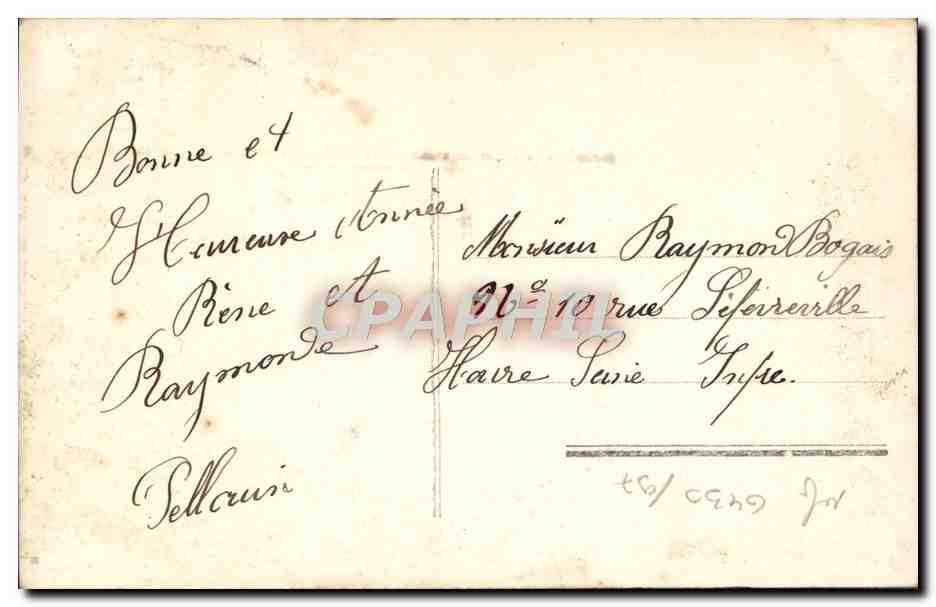 Bonne et
Heureuse Année
Rène et
Raymonde
Pellouin
Monsieur Raymond Bogais
No 10 rue Lefèvreville
Havre Seine Infre.
CPAPHIL